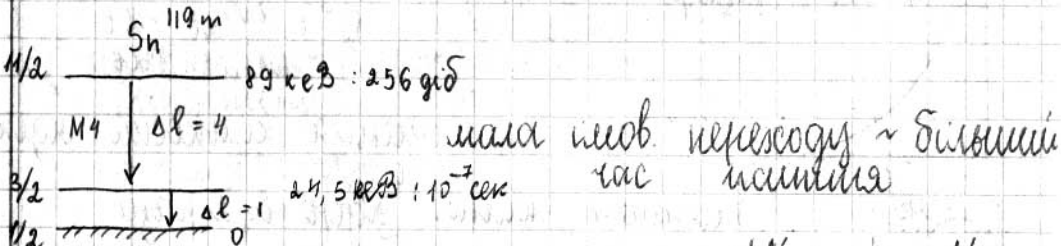 Sn 119m
11/2 89 кеВ : 256 діб
M4 Δl = 4
мала імов. переходу ~ більший
час
3/2 24,5 кеВ : 10⁻⁷ сек
Δl = 1
1/2 0